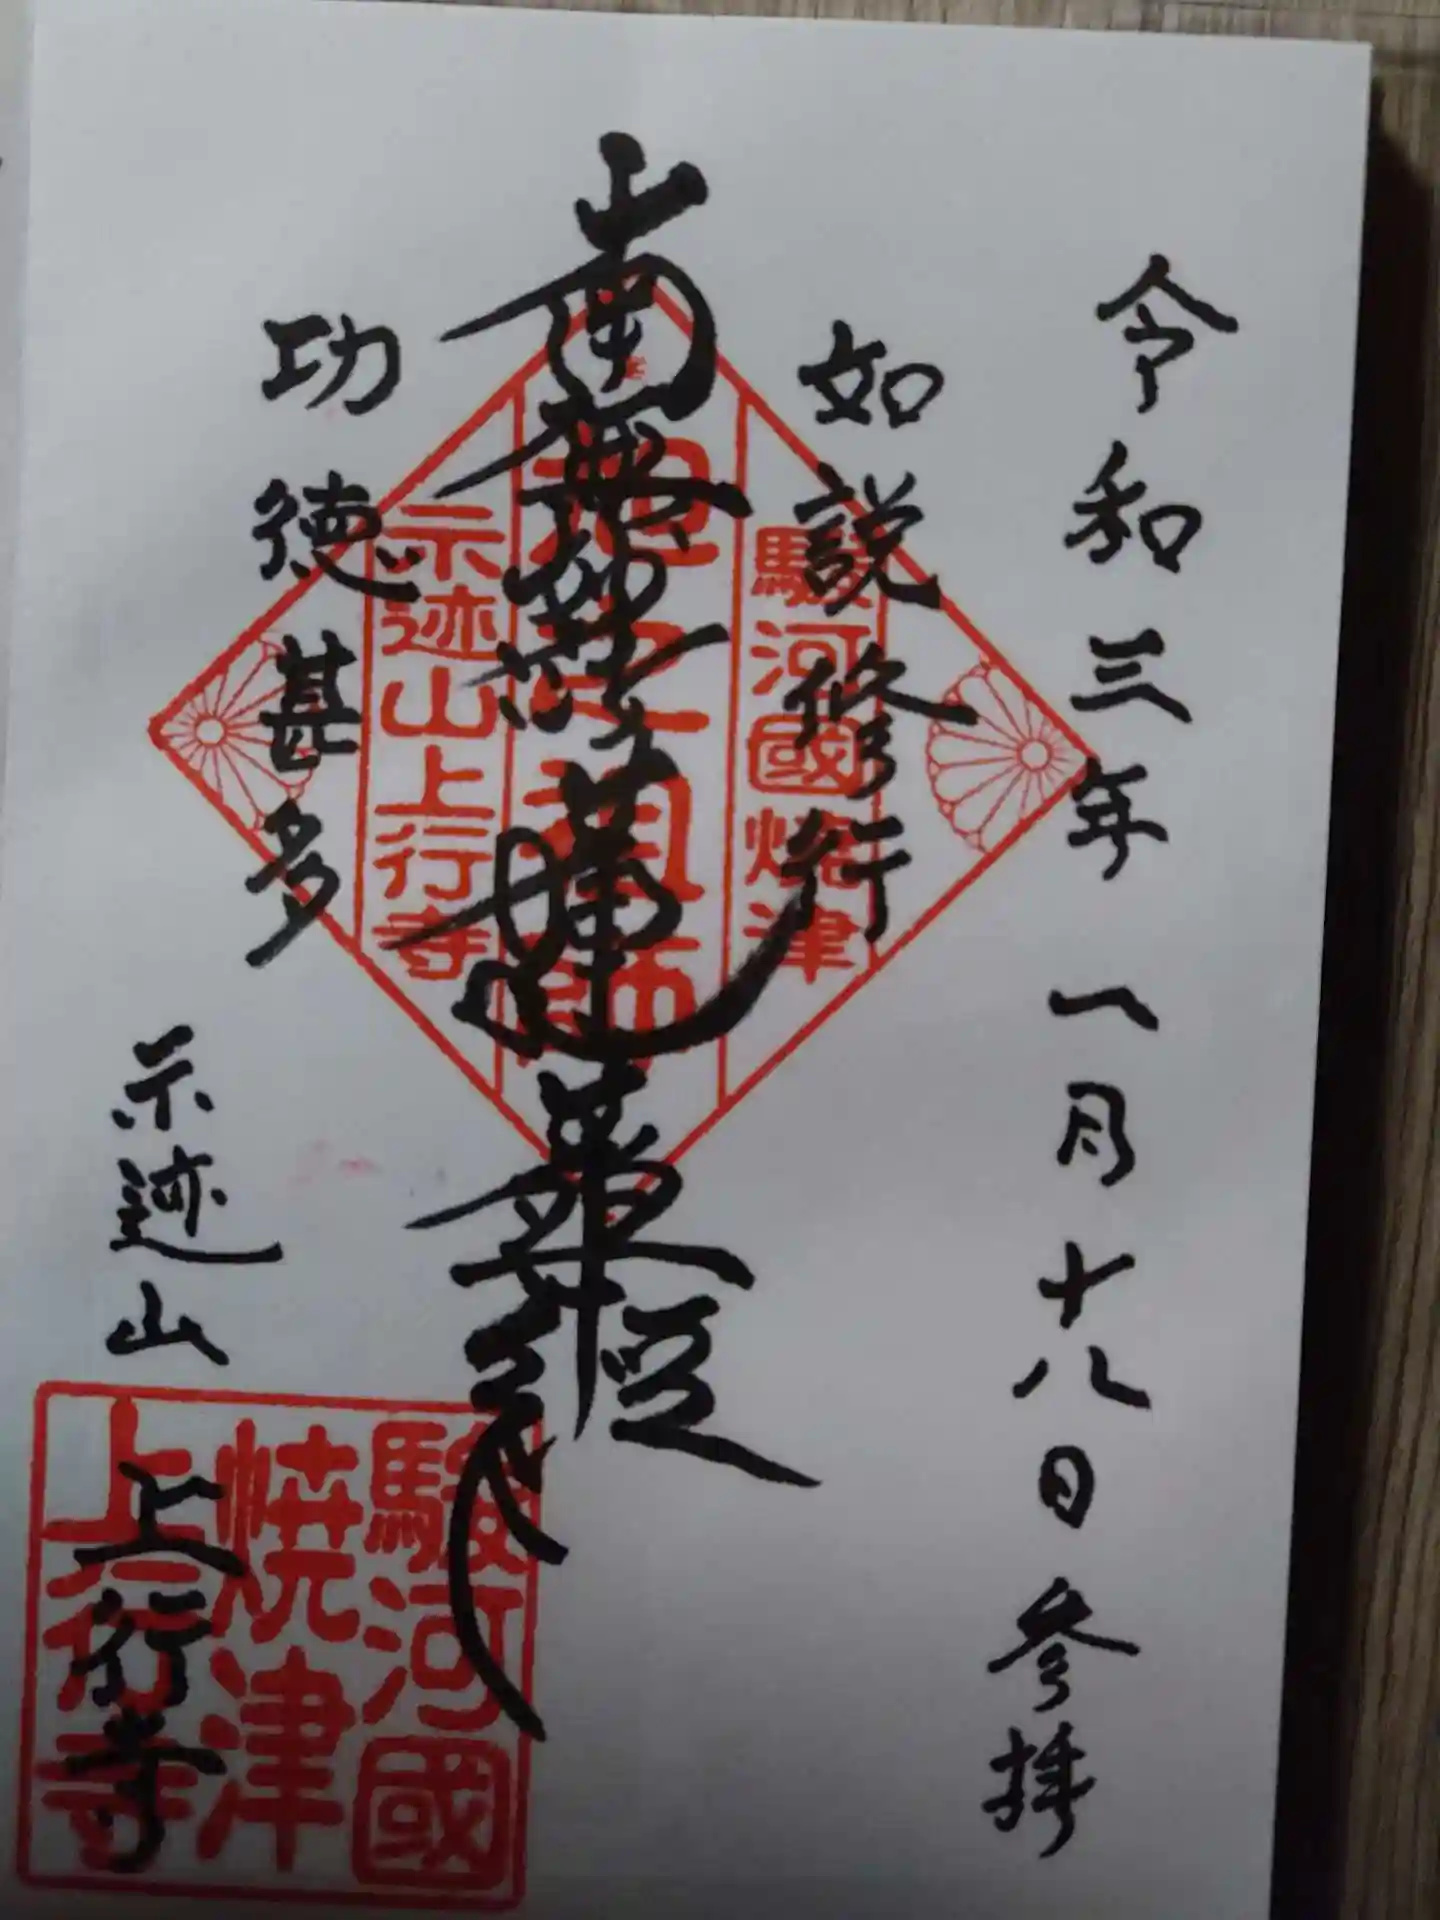 令和三年一月十八日参拝
如説修行
南無妙法蓮華経
功徳甚多
示迹山
上行寺
駿河國焼津
祖師
示迹山上行寺
駿河國
焼津
上行寺